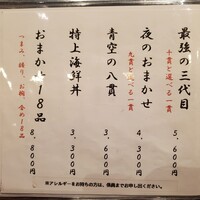 最強の三代目
十貫と選べる一貫
5,600円
夜のおまかせ
九貫と選べる一貫
4,300円
青空の八貫
3,600円
特上海鮮丼
3,300円
おまかせ18品
つまみ、握り、お椀、含め18品
8,800円
※アレルギーをお持ちの方は、係員までお申し出ください。